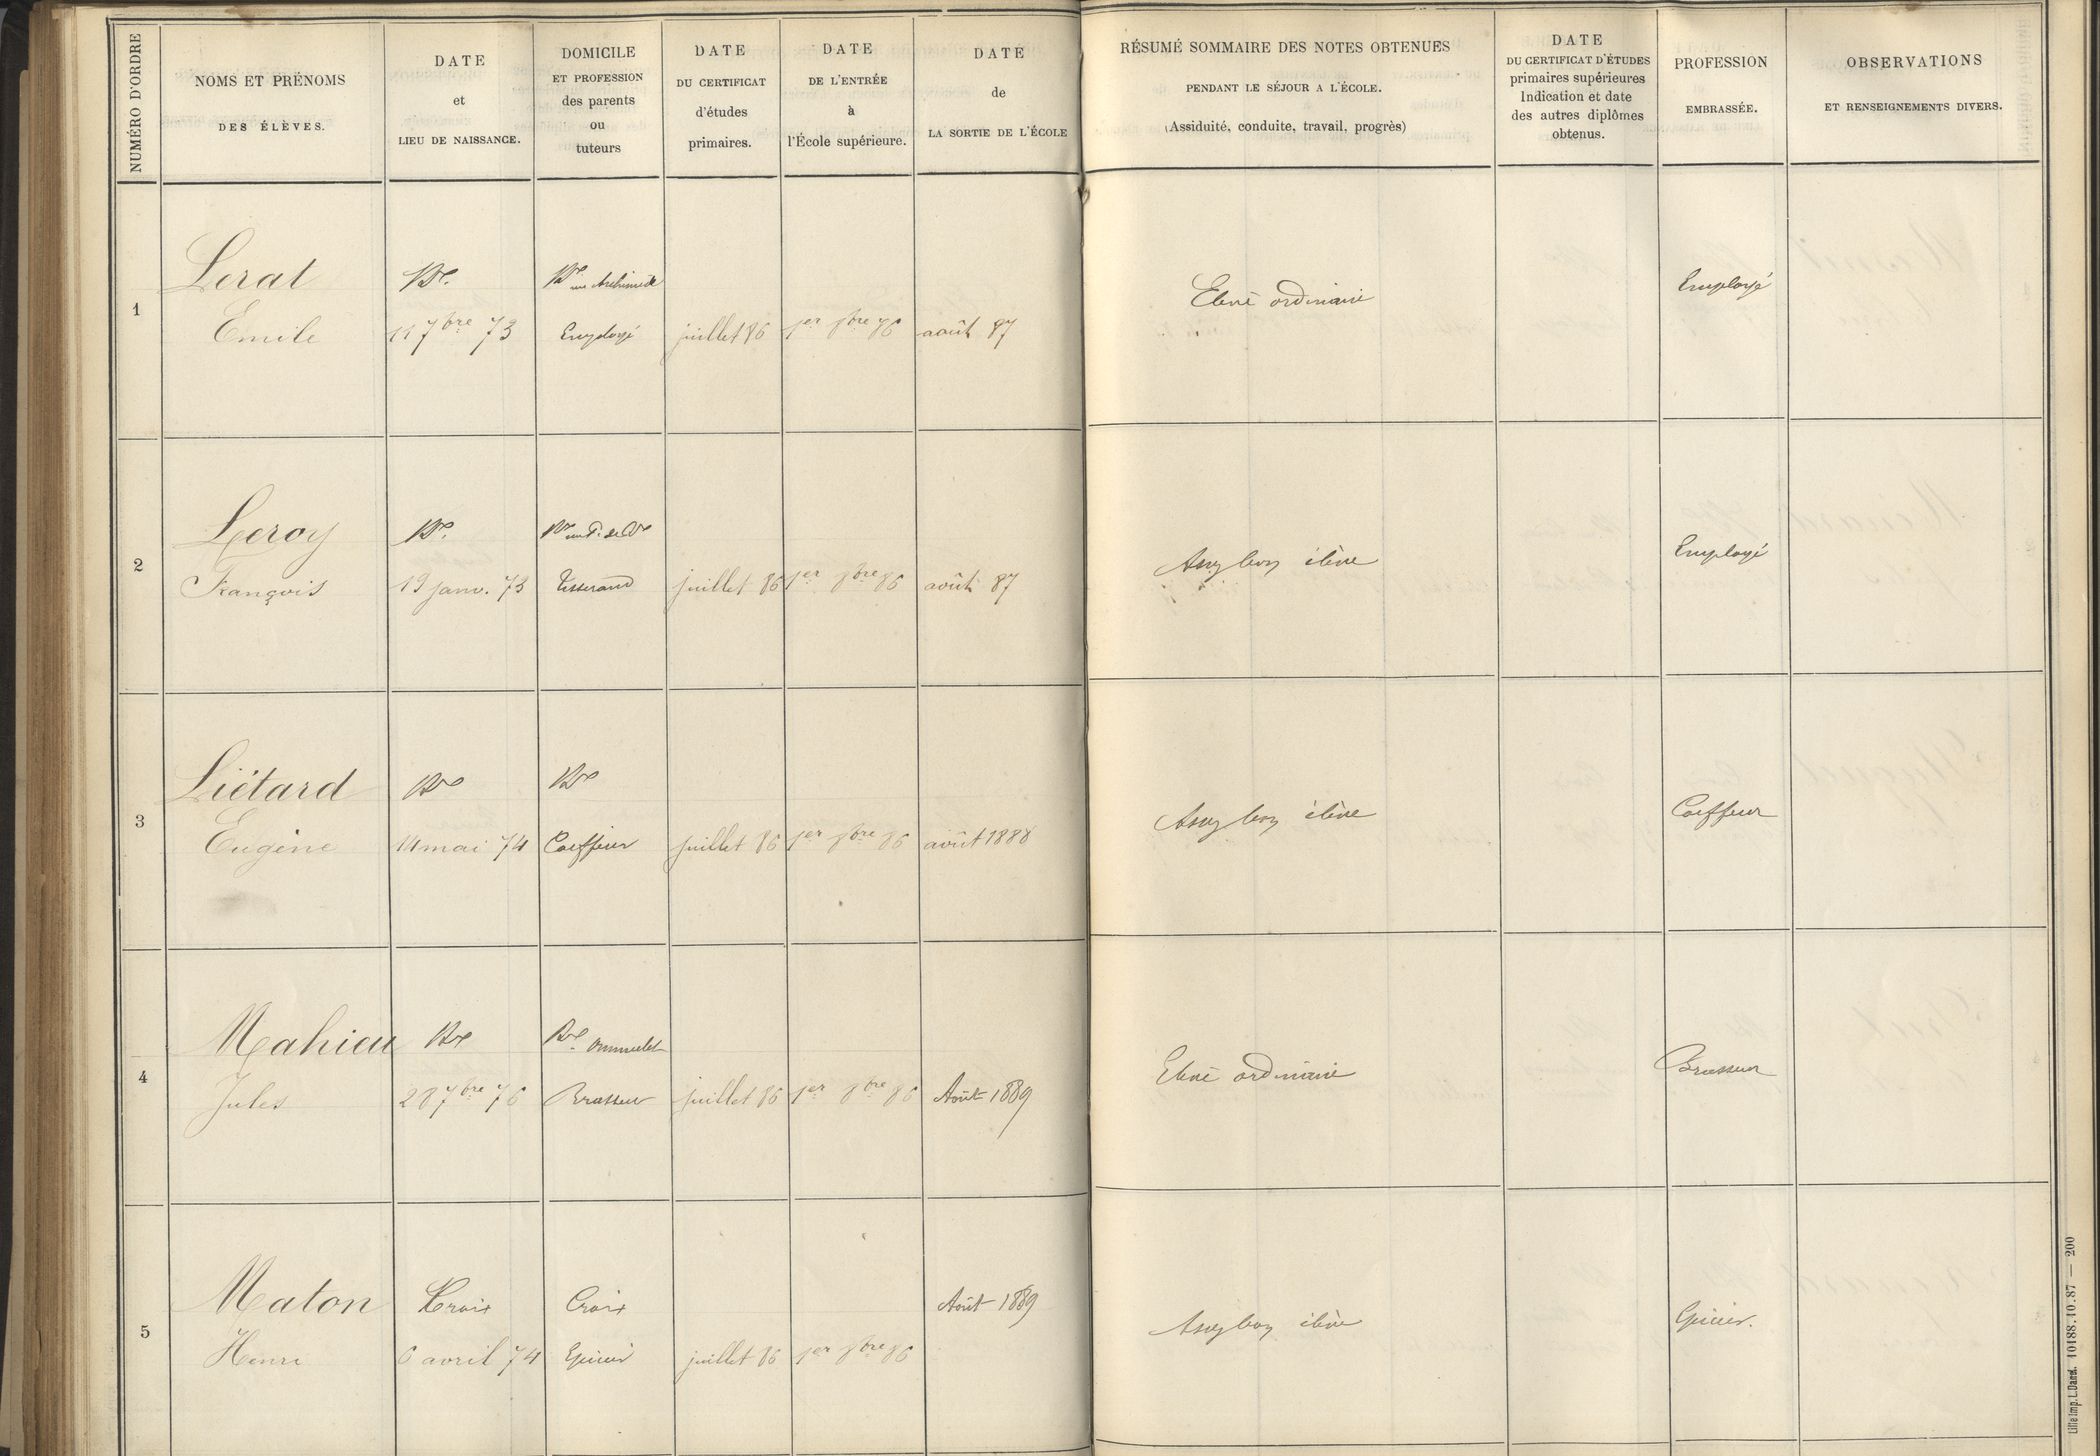 NUMÉRO D'ORDRE
NOMS ET PRÉNOMS
DES ÉLÈVES.
DATE
et
LIEU DE NAISSANCE.
DOMICILE
ET PROFESSION
des parents
ou
tuteurs
DATE
DU CERTIFICAT
d'études
primaires.
DATE
DE L'ENTRÉE
à
l'École supérieure.
DATE
de
LA SORTIE DE L'ÉCOLE
RÉSUMÉ SOMMAIRE DES NOTES OBTENUES
PENDANT LE SÉJOUR A L'ÉCOLE.
(Assiduité, conduite, travail, progrès)
DATE
DU CERTIFICAT D'ÉTUDES
primaires supérieures
Indication et date
des autres diplômes
obtenus.
PROFESSION
EMBRASSÉE.
OBSERVATIONS
ET RENSEIGNEMENTS DIVERS.
1
Lerat
Emile
Bx.
11 7bre 73
Bx rue Archimède
Employé
juillet 86
1er 8bre 86
août 87
Elève ordinaire
Employé
2
Leroy
François
Bx.
19 janv. 73
Tisserand
juillet 86
1er 8bre 86
août 87
Assez bon élève
Employé
3
Liétard
Eugène
Bx
14 mai 74
Bx
Coiffeur
juillet 86
1er 8bre 86
août 1888
Assez bon élève
Coiffeur
4
Mahieu
Jules
Bx
28 7bre 76
Bx
Brasseur
juillet 86
1er 8bre 86
Août 1889
Elève ordinaire
Brasseur
5
Maton
Henri
Croix
6 avril 74
Croix
Epicier
juillet 86
1er 8bre 86
Août 1889
Assez bon élève
Epicier.
Lille Imp. L. Danel. 10188.10.87 — 200